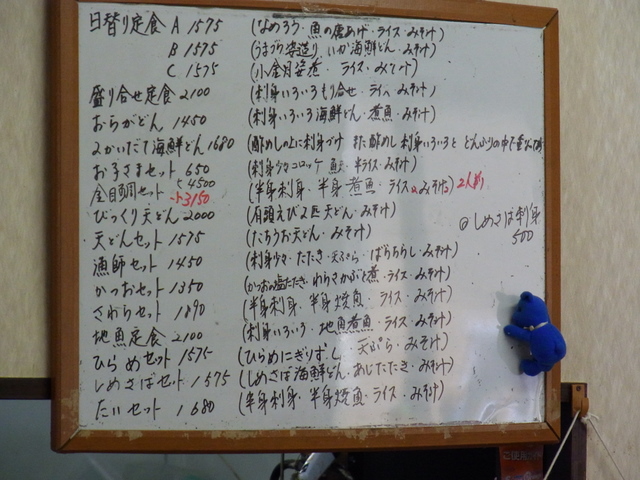 日替り定食 A 1575 (なめろう・魚の唐あげ・ライス・みそ汁)
B 1575 (うまづら姿造り いか海鮮どん・みそ汁)
C 1575 (小金目姿煮 ライス・みそ汁)
盛り合せ定食 2100 (刺身いろいろもり合せ・ライス・みそ汁)
おらがどん 1450 (刺身いろいろ海鮮どん・煮魚・みそ汁)
2かいだて海鮮どん 1680 (酢めしの上に刺身づけ また酢めし 刺身いろいろと どんぶりの中で
お子さまセット 650 (刺身少々コロッケ 半ライス・みそ汁)
金目鯛セット 大4500 小3150 (半身刺身・半身煮魚・ライス2・みそ汁2) 2人前
びっくり天どん 2000 (有頭えび2匹天どん・みそ汁)
天どんセット 1575 (たちうお天どん・みそ汁)
◎しめさば刺身
500
漁師セット 1450 (刺身少々・たたき・天ぷら・ばらちらし・みそ汁)
かつおセット 1350 (かつおの塩たたき・わらさかぶと煮・ライス・みそ汁)
さわらセット 1890 (半身刺身・半身焼魚・ライス・みそ汁)
地魚定食 2100 (刺身いろいろ・地魚煮魚・ライス・みそ汁)
ひらめセット 1575 (ひらめにぎりずし 天ぷら・みそ汁)
しめさばセット 1575 (しめさば海鮮どん・あじたたき・みそ汁)
たいセット 1680 (半身刺身・半身焼魚・ライス・みそ汁)